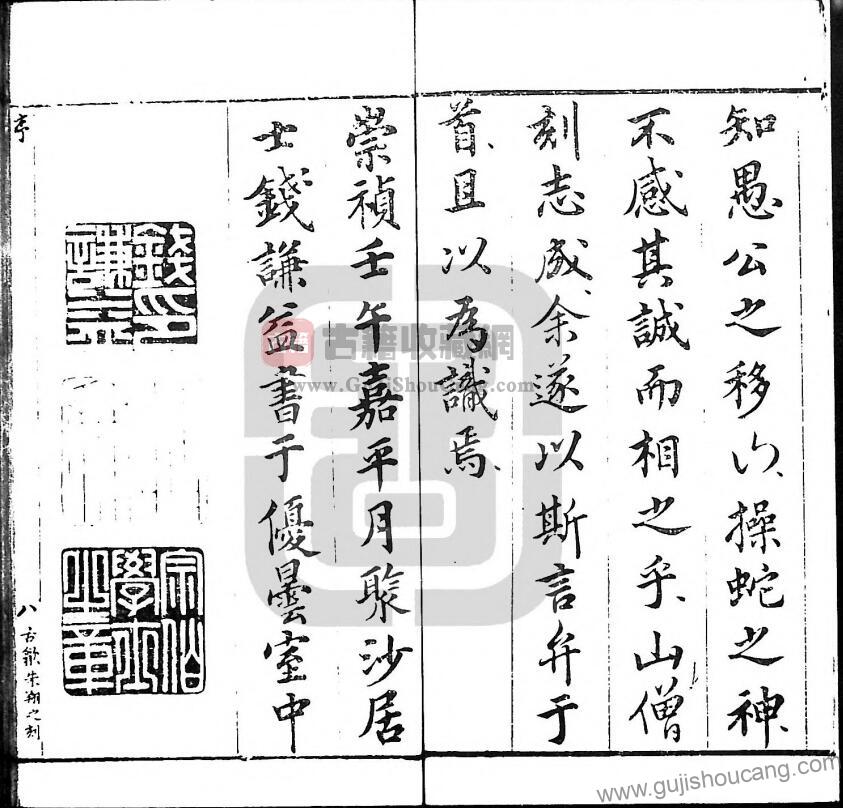 知愚公之移山、操蛇之神、
不感其誠而相之乎、山僧
刻志成、余遂以斯言弁于
首、且以為識焉、
崇禎壬午嘉平月聚沙居
士錢謙益書于優曇室中
錢謙益印
序
八
古歙朱翔之刻
古籍收藏網
www.GujiShouCang.com
www.gujishoucang.com